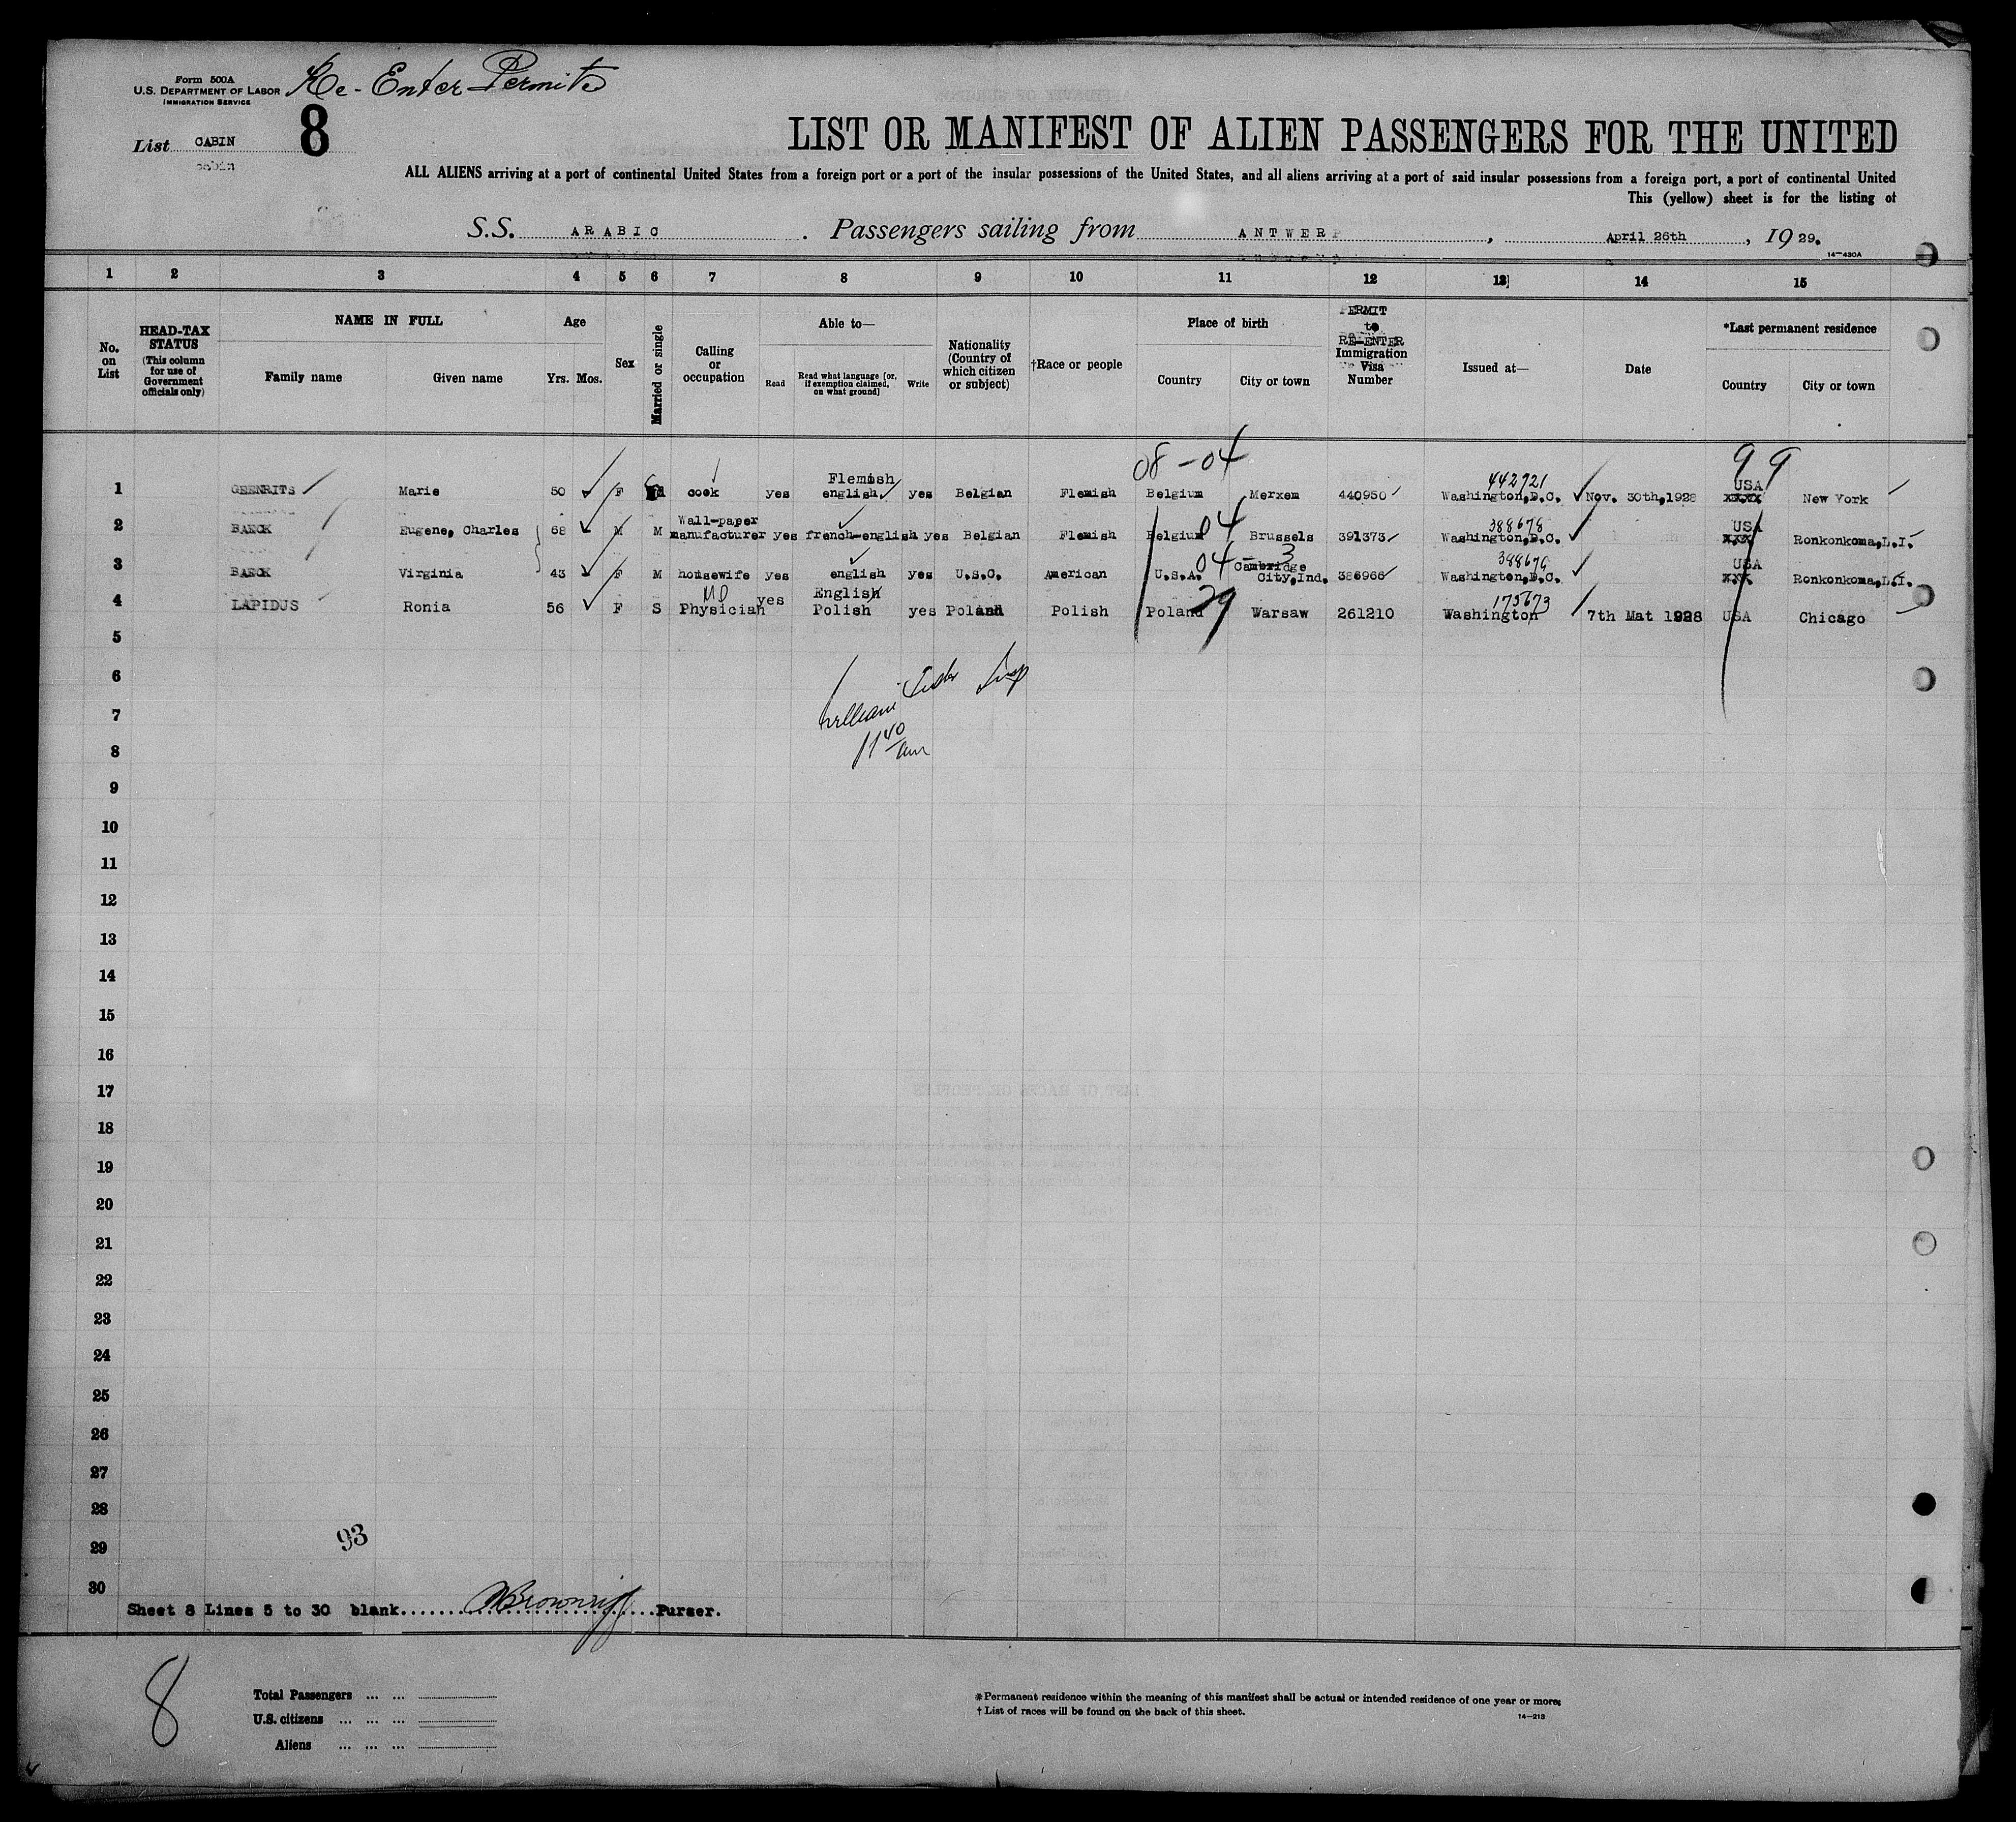 Form 500A
U.S. DEPARTMENT OF LABOR
IMMIGRATION SERVICE
Re-Enter Permits
List CABIN 8
cabin
LIST OR MANIFEST OF ALIEN PASSENGERS FOR THE UNITED
ALL ALIENS arriving at a port of continental United States from a foreign port or a port of the insular possessions of the United States, and all aliens arriving at a port of said insular possessions from a foreign port, a port of continental United
This (yellow) sheet is for the listing of
S.S. ARABIC. Passengers sailing from ANTWERP, April 26th, 1929.
14—430A
1 2 3 4 5 6 7 8 9 10 11 12 13 14 15
No. on List
HEAD-TAX STATUS (This column for use of Government officials only)
NAME IN FULL
Family name Given name
Age
Yrs. Mos.
Sex
Married or single
Calling or occupation
Able to—
Read Read what language [or, if exemption claimed, on what ground] Write
Nationality (Country of which citizen or subject)
†Race or people
Place of birth
Country City or town
PERMIT to RE-ENTER Immigration Visa Number
Issued at—
Date
*Last permanent residence
Country City or town
08-04 99
Flemish 442921 USA
1 GEENRITS Marie 50 F cook yes english yes Belgian Flemish Belgium Merxem 440950 Washington,D.C. Nov. 30th,1928 xxxx New York
Wall-paper 04 388678 USA
2 BAECK Eugene, Charles 68 M M manufacturer yes french-english yes Belgian Flemish Belgium Brussels 391373 Washington,D.C. xxx Ronkonkoma,L.I.
04-3 Cambridge 388676 USA
3 BAECK Virginia 43 F M housewife yes english yes U.S.C. American U.S.A. City,Ind. 386966 Washington,D.C. xxx Ronkonkoma,L.I.
MD English 29 175673
4 LAPIDUS Ronia 56 F S Physician yes Polish yes Poland Polish Poland Warsaw 261210 Washington 7th Mat 1928 USA Chicago
5
6
William
7
11 40 am
8
9
10
11
12
13
14
15
16
17
18
19
20
21
22
23
24
25
26
27
28
93
29
30
Sheet 8 Lines 5 to 30 blank Purser.
8
Total Passengers ... ...
U.S. citizens ... ... ...
Aliens ... ... ...
*Permanent residence within the meaning of this manifest shall be actual or intended residence of one year or more.
†List of races will be found on the back of this sheet.
14—213